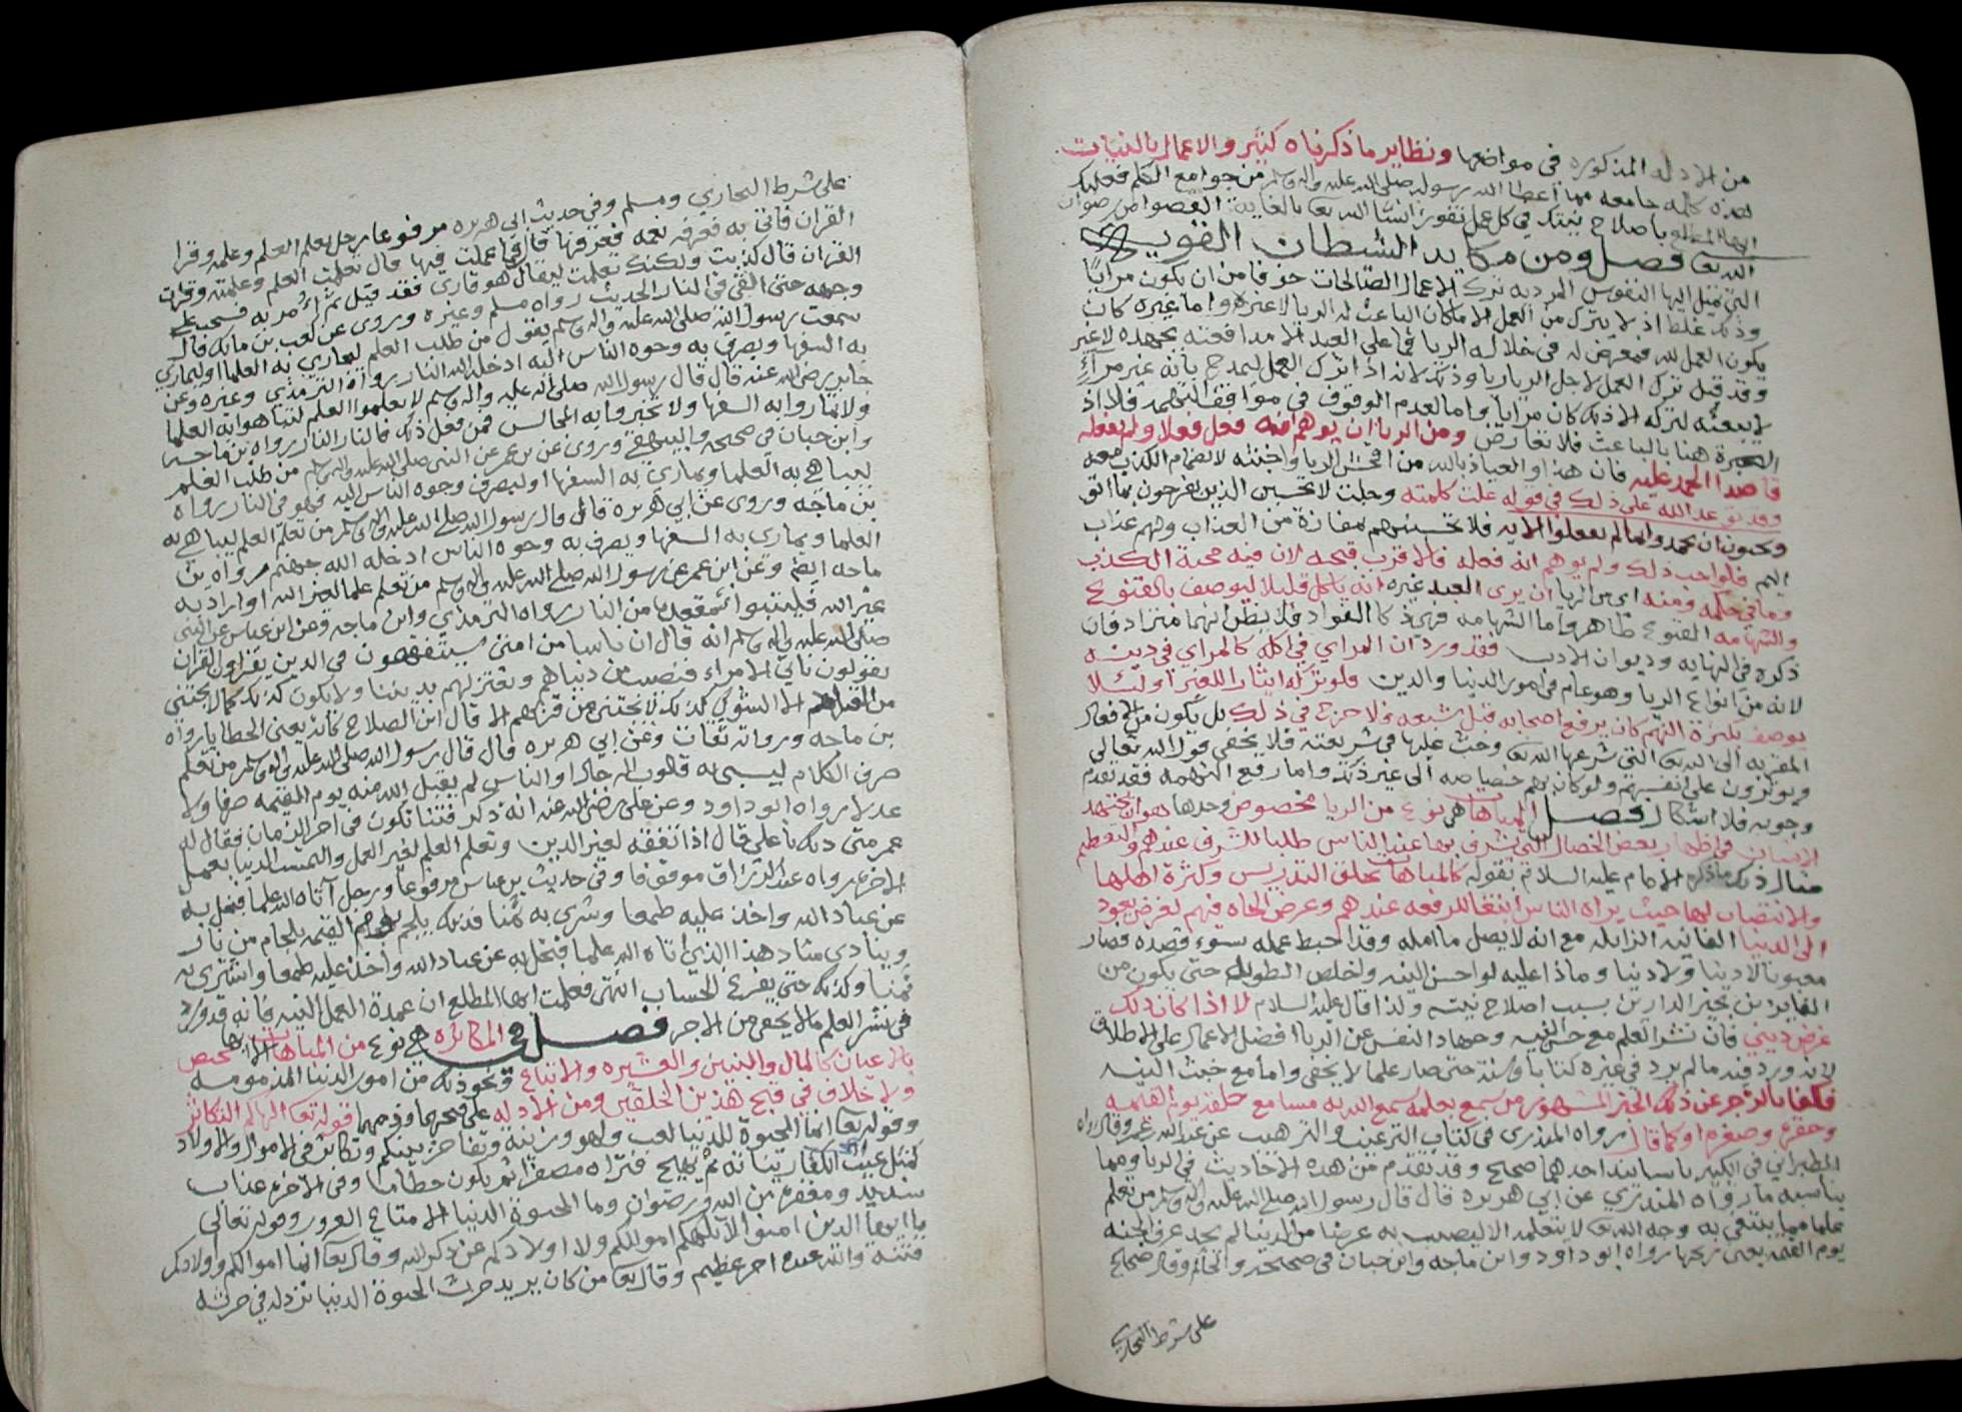 من الادله المذكوره في مواضعها ونظاير ما ذكرناه كثير والاعمال بالنيات
كلمه جامعه مما أعطا الله رسوله صلى الله عليه واله وسلم من جوامع الكلم فعليك
ايها المطلع باصلاح نيتك في كل عمل تفوز انشا الله تعا بالغاية القصوا من رضوان
الله تعا فصل ومن مكايد الشيطان القويـه
التي تميل اليها النفوس المرديه ترك الاعمال الصالحات خوفا من ان يكون مرايًا
وذلك غلط اذ لا يترك من العمل الا ما كان الباعث له الريا لا غيره واما غيره كان
يكون العمل لله فيعرض له في خلاله الريا فما على العبد الا مدافعته بجهده لا غير
وقد قيل ترك العمل لاجل الريا ريا وذلك لانه اذا ترك العمل ليمدح بأنه غير مرآءٍ
لا يبعثه لتركه الا ذلك كان مرايا واما لعدم الوقوف في مواقف التهم فلا اذ
العبرة هنا بالباعث فلا تعارض ومن الريا ان يوهم انه فعل فعلا ولم يفعله
قاصدا الحمد عليه فان هذا والعياذ بالله من افحش الريا واخبثه لانضمام الكذب معه
وقد توعد الله على ذلك في قوله علت كلمته وجلت لا تحسبن الذين يفرحون بما اتو
ويحبون ان يحمدوا بما لم يفعلوا الايه فلا تحسبنهم بمفازة من العذاب ولهم عذاب
اليم فلو احب ذلك ولم يوهم انه فعله فالاقرب قبحه لان فيه محبة الكذب
وما في حكمه ومنه اي من الريا ان يرى العبد غيره انه ياكل قليلا ليوصف بالقنوع
والشهامه القنوع ظاهر واما الشهامه فهي ذكا الفواد فلا يظن انهما مترادفان
ذكره في النهايه وديوان الادب فقد ورد ان المراي في اكله كالمراي في دينه
لانه من انواع الريا وهو عام في امور الدنيا والدين فلو تركه ايثارا للغير او لئلا
يوصف بكثرة النهم كان يرفع اصحابه قبل شبعه فلا حرج في ذلك بل يكون من الافعال
المقربه الى الله تعا التي شرعها الله تعا وحث عليها في شريعته فلا يخفى قول الله تعالى
ويوثرون على انفسهم ولو كان بهم خصاصه الى غير ذلك واما رفع التهمه فقد تقدم
وجوبه فلا اشكال فصل المباهاة هي نوع من الريا مخصوص وحدها هو ان يجتهد
الانسان في اظهار بعض الخصال التي يشرف بها عند الناس طلبا للشرف عندهم والتعظيم
مثال ذلك ما ذكره الامام عليه السلام بقوله كالمباهاة بحلق التدريس وكثرة اهلها
والانتصاب لها حيث يراه الناس ابتغا للرفعه عندهم وعرض الجاه فيهم لغرض يعود
الى الدنيا الفانيه الزايله مع انه لا يصل ما امله وقد احبط عمله بسوء قصده فصار
مغبونا لا دينا ولا دنيا وماذا عليه لو احسن النيه واخلص الطويه حتى يكون من
الفايزين بخير الدارين بسبب اصلاح نيته ولذا قال عليه السلام لا اذا كان ذلك
غرض ديني فان نشر العلم مع حسن النيه وجهاد النفس عن الريا افضل الاعمال على الاطلاق
لانه ورد فيه ما لم يرد في غيره كتابا وسنة حتى صار علما لا يخفى واما مع خبث النيه
فكفا بالزجر عن ذلك الخبر المشهور من سمع بعلمه سمع الله به مسامع خلقه يوم القيمه
وحقره وصغره او كما قال رواه المنذري في كتاب الترغيب والترهيب عن عبدالله بن عمر وقال رواه
الطبراني في الكبير باسانيد احدهما صحيح وقد تقدم من هذه الاحاديث في الريا ومما
يناسبه ما رواه المنذري عن ابي هريره قال قال رسول الله صلى الله عليه واله وسلم من تعلم
علما مما يبتغى به وجه الله تعا لا يتعلمه الا ليصيب به عرضا من الدنيا لم يجد عرف الجنه
يوم القيمه يعني ريحها رواه ابو داود وابن ماجه وابن حبان في صحيحه والحاكم وقال صحيح
على شرط البخاري
على شرط البخاري ومسلم وفي حديث ابي هريره مرفوعا رجل تعلم العلم وعلمه وقرا
القران فاتى به فعرفه نعمه فعرفها قال فما عملت فيها قال تعلمت العلم وعلمته وقرات
القران قال كذبت ولكنك تعلمت ليقال هو قاري فقد قيل ثم أُمر به فسحب على
وجهه حتى القي في النار الحديث رواه مسلم وغيره وروى عن كعب بن مالك قال
سمعت رسول الله صلى الله عليه واله وسلم يقول من طلب العلم ليجاري به العلما او ليماري
به السفها ويصرف به وجوه الناس اليه ادخله الله النار رواه الترمذي وغيره وعن
جابر رضي الله عنه قال قال رسول الله صلى الله عليه واله وسلم لا تعلموا العلم لتباهوا به العلما
ولا تماروا به السفها ولا تخيروا به المجالس فمن فعل ذلك فالنار النار رواه بن ماجه
وابن حبان في صحيحه والبيهقي وروى عن بن عمر عن النبي صلى الله عليه واله وسلم من طلب العلم
ليباهي به العلما ويماري به السفها او ليصرف وجوه الناس اليه فهو في النار رواه
بن ماجه وروى عن ابي هريره قال قال رسول الله صلى الله عليه واله وسلم من تعلم العلم ليباهي به
العلما ويماري به السفها ويصرف به وجوه الناس ادخله الله جهنم رواه بن
ماجه ايضا وعن ابن عمر عن رسول الله صلى الله عليه واله وسلم من تعلم علما لغير الله او اراد به
غير الله فليتبوا مقعده من النار رواه الترمذي وابن ماجه وعن ابن عباس عن النبي
صلى الله عليه واله وسلم انه قال ان ناسا من امتي سيتفقهون في الدين يقراون القران
يقولون ناتي الامراء فنصيب من دنياهم ونعتزلهم بديننا ولا يكون ذلك كما لا يجتنى
من القتاد الا الشوك كذلك لا يجتنى من قربهم الا قال ابن الصلاح كانه يعني الخطايا رواه
بن ماجه ورواته ثقات وعن ابي هريره قال قال رسول الله صلى الله عليه واله وسلم من تعلم
صرف الكلام ليسبي به قلوب الرجال او الناس لم يقبل الله منه يوم القيمه صرفا ولا
عدلا رواه ابو داود وعن علي رضي الله عنه انه ذكر فتنا تكون في اخر الزمان فقال له
عمر متى ذلك يا علي قال اذا تفقه لغير الدين وتعلم العلم لغير العمل والتمست الدنيا بعمل
الاخره رواه عبد الرزاق موقوفا وفي حديث بن عباس مرفوعا ورجل آتاه الله علما فبخل به
عن عباد الله واخذ عليه طمعا وشرى به ثمنا فذلك يلجم يوم القيمه بلجام من نار
وينادي مناد هذا الذي اتاه الله علما فبخل به عن عباد الله واخذ عليه طمعا واشترى به
ثمنا وكذلك حتى يفرغ الحساب انتهى فعلمت ايها المطلع ان عمدة العمل النيه فانه قد ورد
في نشر العلم ما لا يخفى من الاجر فصل في المكاثره هي نوع من المباهاة الا انها تختص
بالاعيان كالمال والبنين والعشيره والاتباع ونحو ذلك من امور الدنيا المذمومه
ولا خلاف في قبح هذين الخلقين ومن الادله على قبحهما وذمهما قوله تعا الهاكم التكاثر
وقوله تعا انما الحيوة الدنيا لعب ولهو وزينة وتفاخر بينكم وتكاثر في الاموال والاولاد
كمثل غيث اعجب الكفار نباته ثم يهيج فتراه مصفرا ثم يكون حطاما وفي الاخره عذاب
شديد ومغفرة من الله ورضوان وما الحيوة الدنيا الا متاع الغرور وقوله تعالى
يا ايها الذين امنوا لا تلهكم اموالكم ولا اولادكم عن ذكر الله وقال تعا انما اموالكم واولادكم
فتنة والله عنده اجر عظيم وقال تعا من كان يريد حرث الحيوة الدنيا نزد له في حرثه